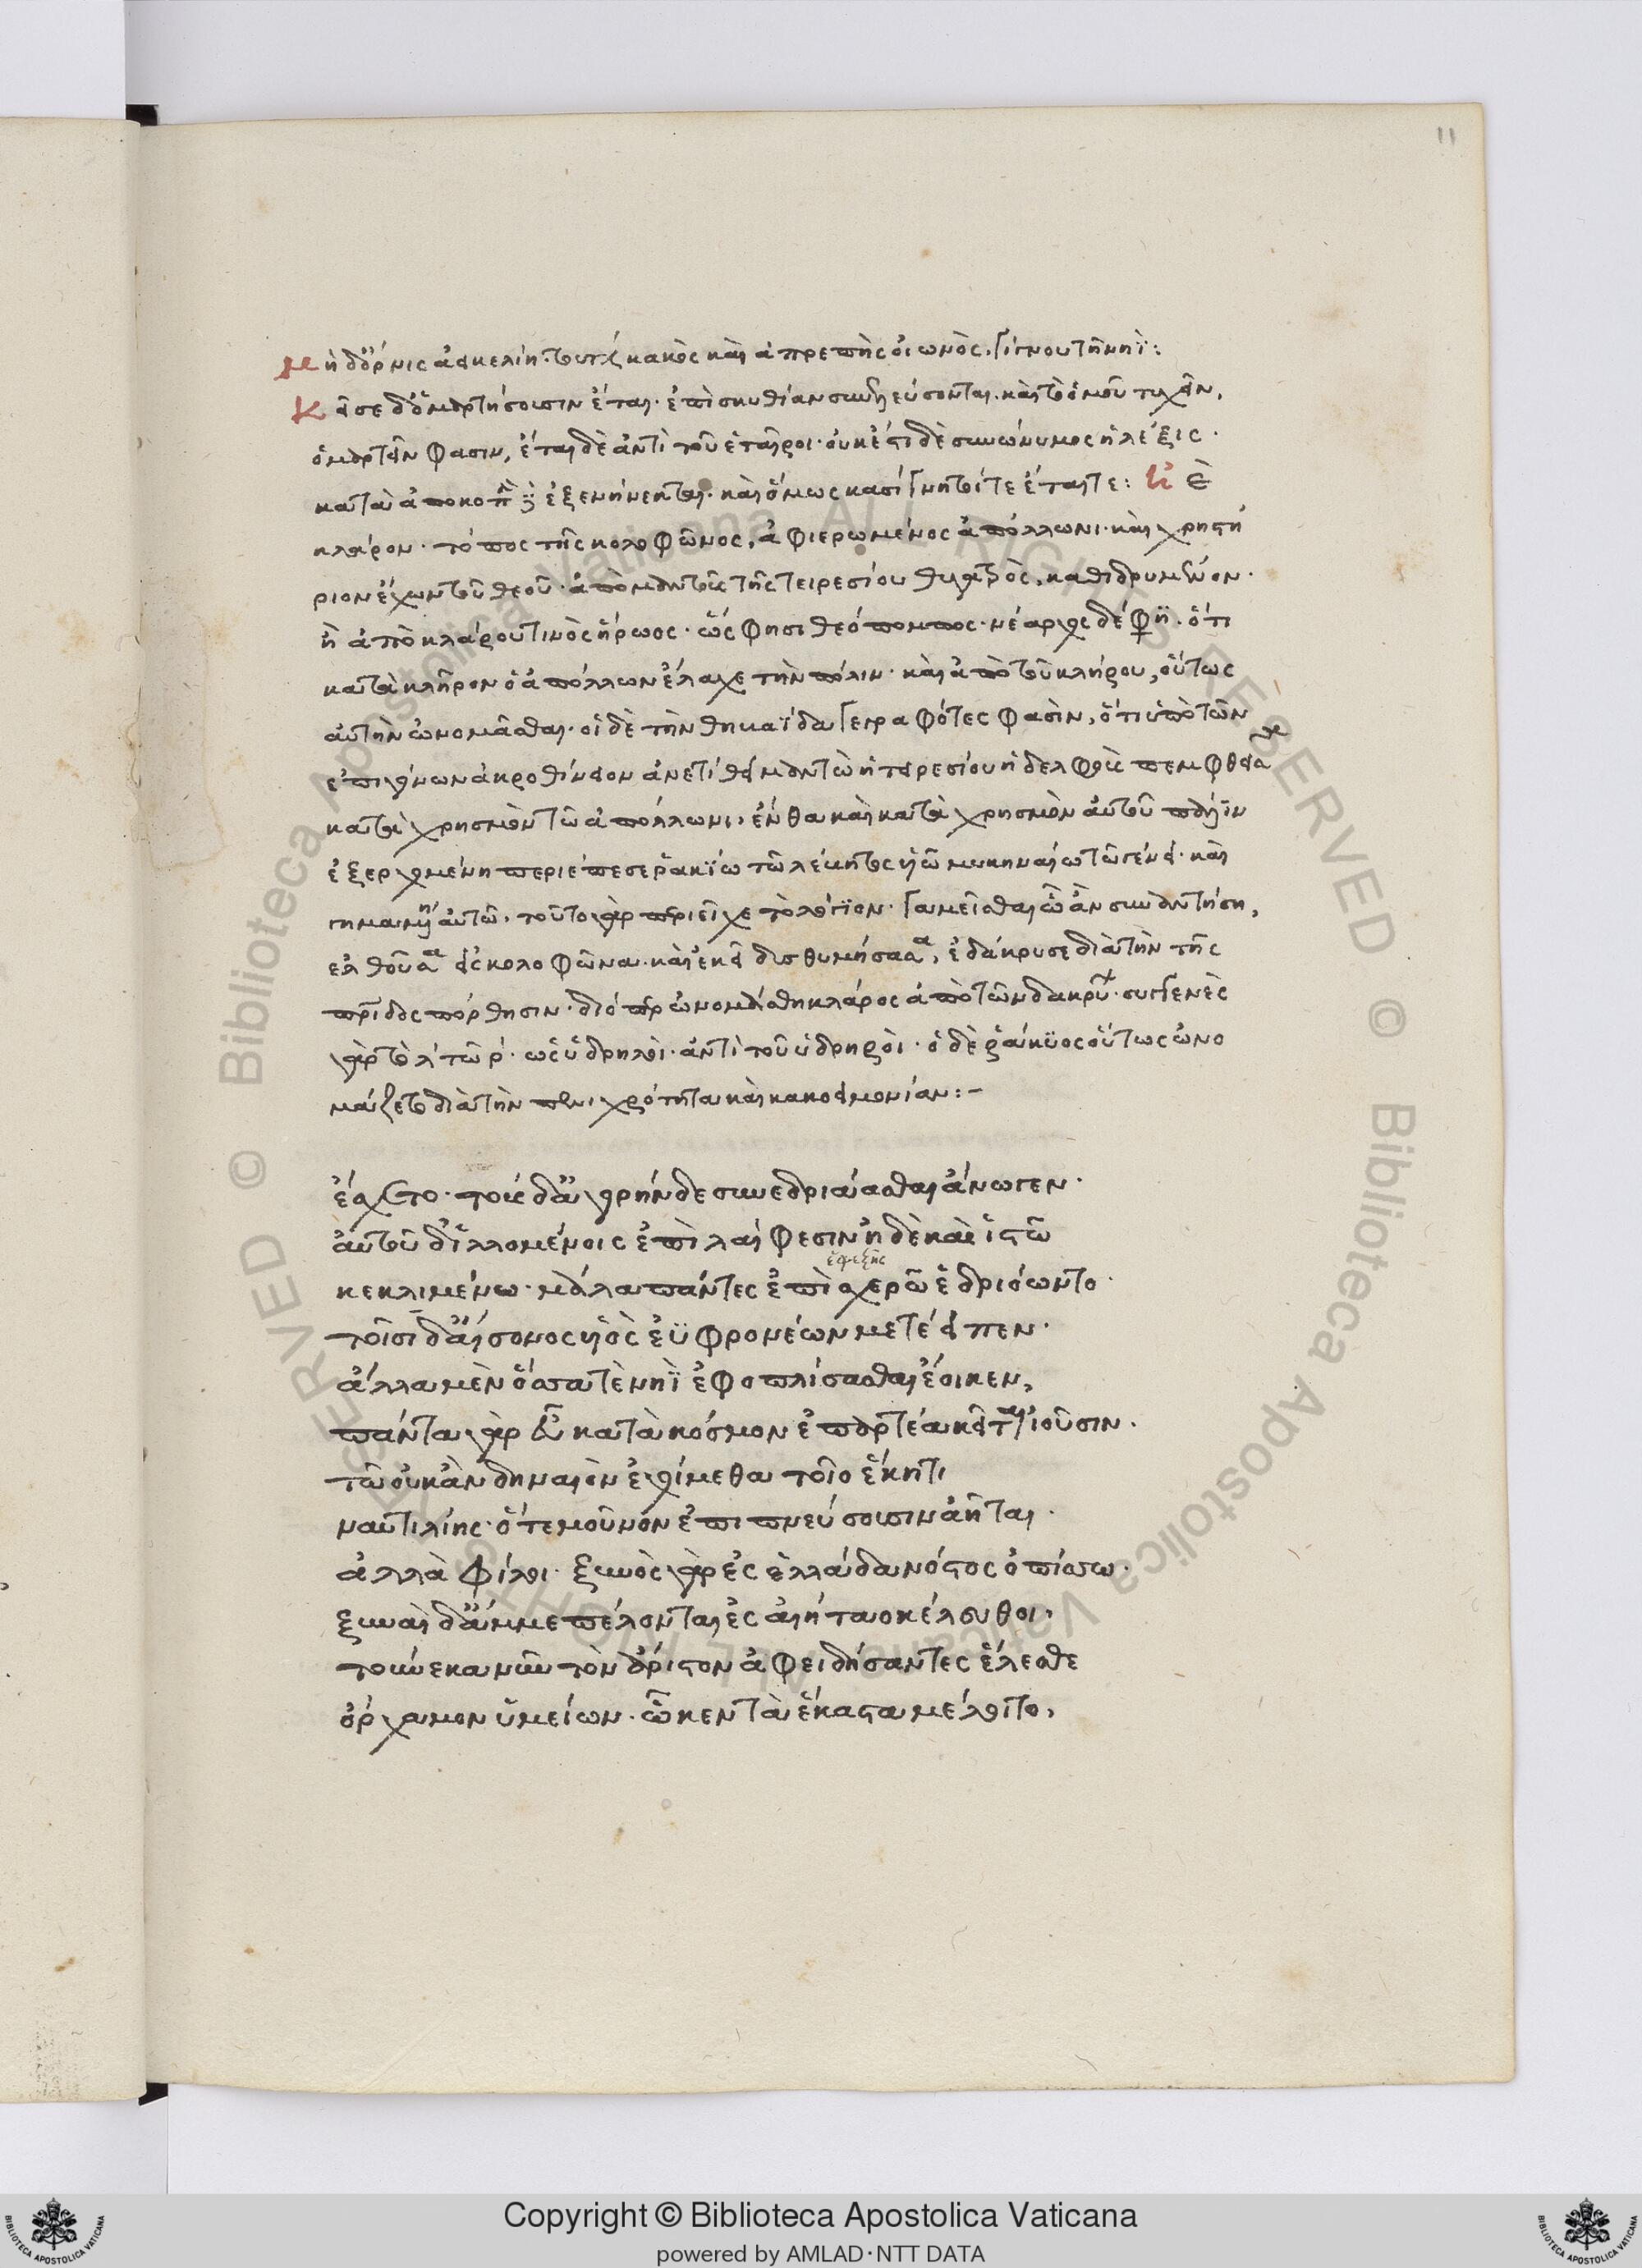 11
Μὴ δ' ὄρνις ἀεικελίη· τουτέστι κακὸς καὶ ἀπρεπὴς οἰωνὸς, γίγνου τῆ νηΐ:
Κεῖσε δ' ὁμαρτήσουσιν ἔται· ἐπὶ σκυθίαν συνοδεύσονται. καὶ τὸ ὁμοῦ τυχεῖν,
ὁμαρτεῖν φασιν, ἔται δὲ ἀντὶ τοῦ ἑταῖροι· οὐκέτι δὲ συνώνυμος ἡ λέξις·
κατὰ ἀποκοπὴν ἐξενήνεκται· καὶ ὅμως κασίγνητοί τε ἔται τε:
κλάρον· τόπος τῆς κολοφῶνος, ἀφιερωμένος ἀπόλλωνι· καὶ χρηστή
ριον ἔχων τοῦ θεοῦ· ἀπὸ μαντοῦς τῆς τειρεσίου θυγατρὸς, καθιδρυμένον·
ἢ ἀπὸ κλάρου τινὸς ἥρωος· ὥς φησι θεόπομπος· νέαρχος δέ φη· ὅτι
κατὰ κλῆρον ὁ ἀπόλλων ἔλαχε τὴν πόλιν· καὶ ἀπὸ τοῦ κλήρου, οὕτως
αὐτὴν ὠνομάσθαι· οἱ δὲ τὴν θηβαΐδα γεγραφότες φασὶν, ὅτι ὑπὸ τῶν
ἐπιγόνων ἀκροθίνιον ἀνετίθει μαντὼ ἡ τειρεσίου ἡ δελφοὺς πεμφθεῖσα
κατὰ χρησμὸν τῶ ἀπόλλωνι, ἔνθα καὶ κατὰ χρησμὸν αὐτοῦ
ἐξερχομένη περιέπεσε ῥακίω τῶ λέβητος υἱῶ μυκηναίω τῶ γένει· καὶ
γημαμένη αὐτῶ· τοῦτο γὰρ περιεῖχε τὸ λόγιον· γαμεῖσθαι ὧ ἂν συναντήση,
ἐλθοῦσα εἰς κολοφῶνα· καὶ ἐκεῖ δυσθυμήσασα, ἐδάκρυσε διὰ τὴν τῆς
πατρίδος πόρθησιν· διόπερ ὠνομάσθη κλάρος ἀπὸ τῶν δακρύων· συγγενὲς
γὰρ τὸ λ τῶ ρ· ὡς ὑδρηλοὶ· ἀντὶ τοῦ ὑδρηροὶ· ὁ δὲ ῥάκιος οὕτως ὠνο
μάζετο διὰ τὴν πενιχρότητα καὶ κακοειμονίαν:–
ἔσχετο· τοὺς δ' ἀγορήνδε συνεδριάασθαι ἄνωγεν·
αὐτοῦ δ' ἰλλομένοις ἐπὶ λαίφεσιν ἠδὲ καὶ ἱστῶ
ἐφεξῆς
κεκλιμένω· μάλα πάντες ἐπισχερῶ ἑδριόωντο·
τοῖσι δ' αἴσονος υἱὸς ἐϋφρονέων μετέειπεν·
ἄλλα μὲν ὅσσα τὲ νηῒ ἐφοπλίσασθαι ἔοικεν,
πάντα γὰρ εὖ κατὰ κόσμον ἐπαρτέα κεῖται ἰοῦσιν·
τῶ οὐκ ἂν δηναιὸν ἐχοίμεθα τοῖο ἕκητι
ναυτιλίης· ὅτε μοῦνον ἐπιπνεύσουσιν ἀῆται·
ἀλλὰ φίλοι· ξυνὸς γὰρ ἐς ἑλλάδα νόστος ὀπίσσω·
ξυναὶ δ' ἄμμε πέλονται ἐς αἰήταο κέλευθοι·
τούνεκα νῦν τὸν ἄριστον ἀφειδήσαντες ἕλεσθε
ὄρχαμον ὑμείων· ὧ κεν τὰ ἕκαστα μέλοιτο,
Copyright © Biblioteca Apostolica Vaticana
powered by AMLAD·NTT DATA